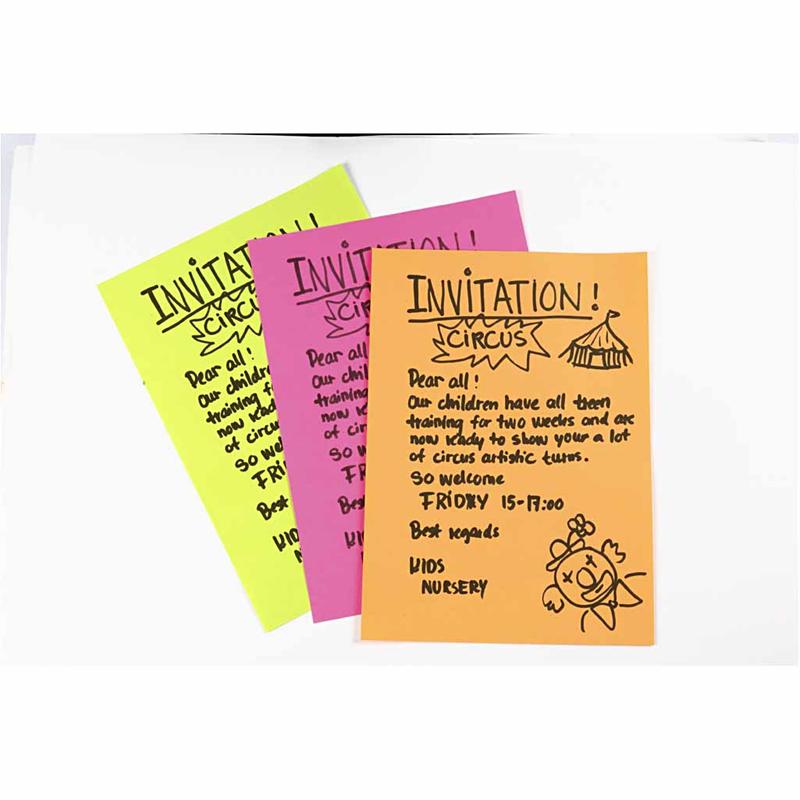 INVITAT
CIRCU
Dear all!
Our children
training for
now ready
of circus
So wel
FRI
Best
KIDS
N
INVITATION!
CIR
Dear all
Our chil
training
now re
of cir
So w
FR
Best
KI
INVITATION!
CIRCUS
Dear all!
Our children have all been
training for two weeks and are
now ready to show your a lot
of circus artistic turns.
So welcome
FRIDAY 15-17:00
Best regards
KIDS
NURSERY